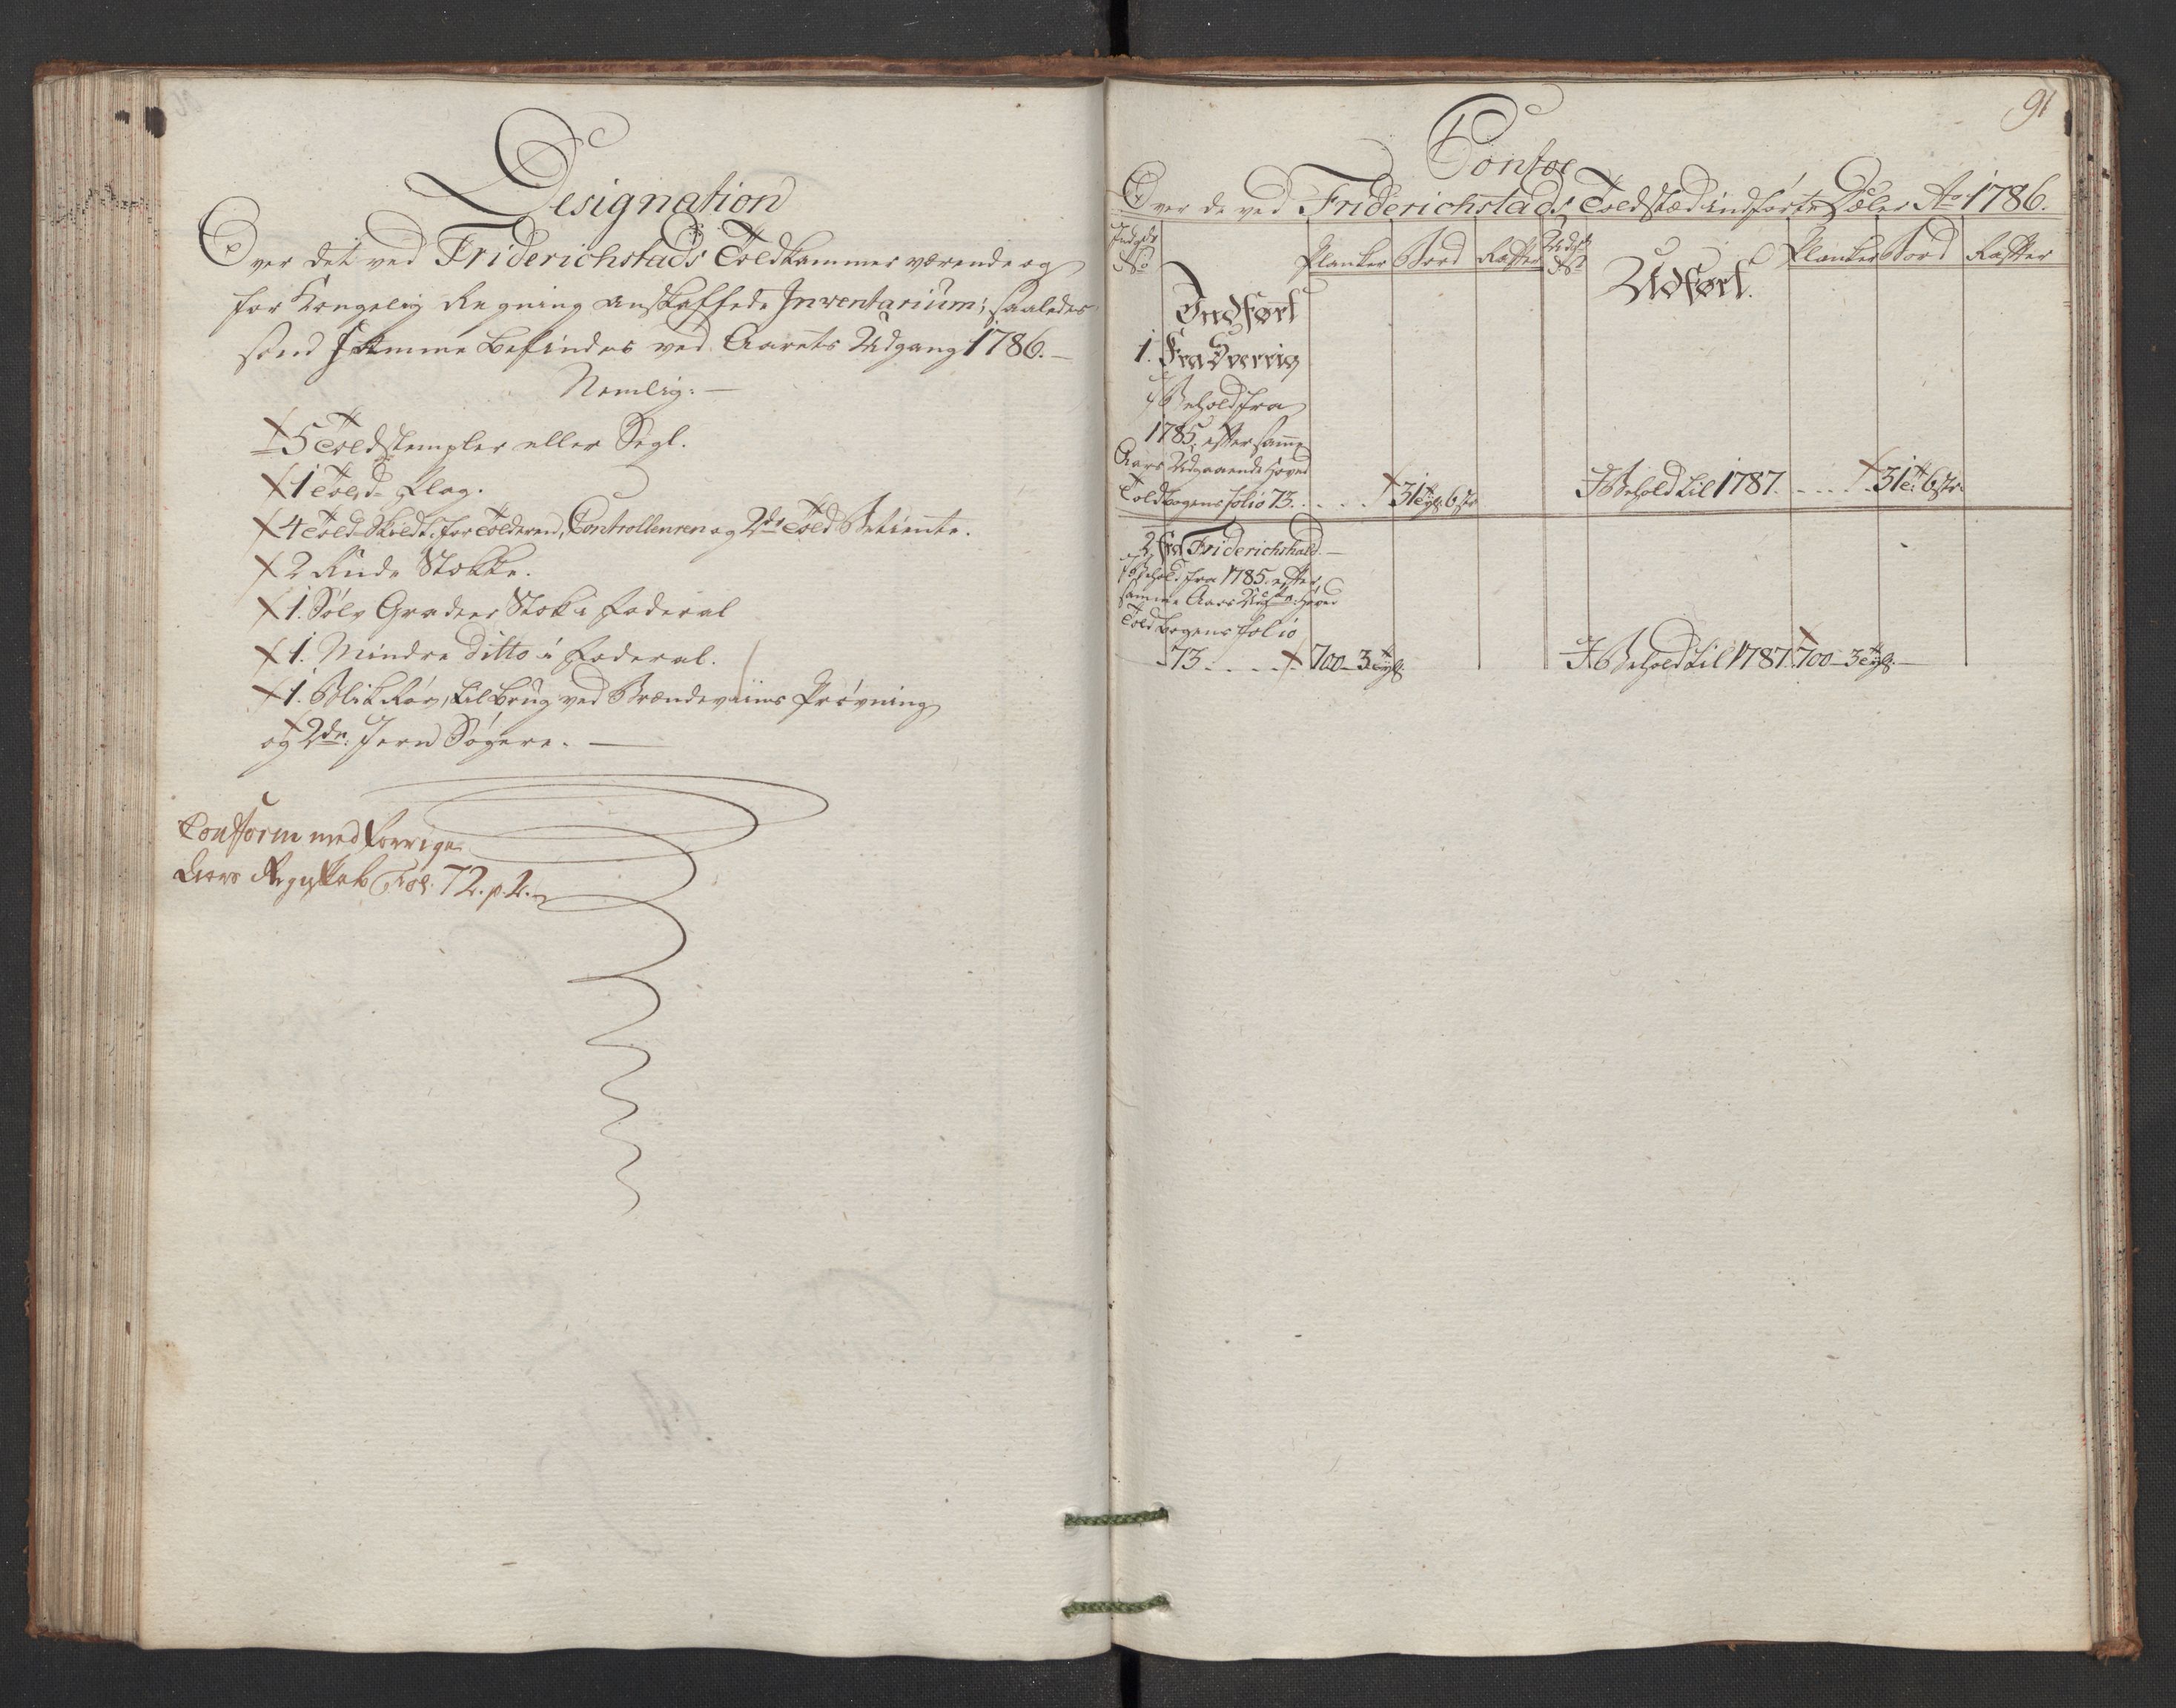 Designation
Over det ved Friderichstads Toldkammer værende og
for Kongelig Regning anskaffede Inventarium; saaledes
som samme befindes ved Aarets Udgang 1786.
Nemlig:
5 Toldstempler eller Segl.
1 Told-Flag.
4 Told-Skildte for Tolderen, Controlleuren og 2de Told Betiente.
2 Runde Stokke.
1. Sølv Gradeer Stok i Foderal
1. Mindre ditto i Foderal.
1. Blik Rør, til brug ved Brændeviins Prøvning
og 2de Jern Søgere.
Conform med forrige
Aars Regnskab Fol. 72. p. 2.
91
Contoe
Over de ved Friderichstads Toldsted indførte Dæler Ao 1786.
Planker Bord Rafter Planker Bord Rafter
Indført Udført.
1. Fra Sverrig
I Behold fra
1785, efter samme
Aars Udgaaende Hoved
Toldbogens folio 73. 31 6 I Behold til 1787. 31 6
2 fra Friderichshald
I Behold fra 1785. efter
samme Aars Hoved
Toldbogens folio
73. 700-3 I Behold til 1787. 700-3